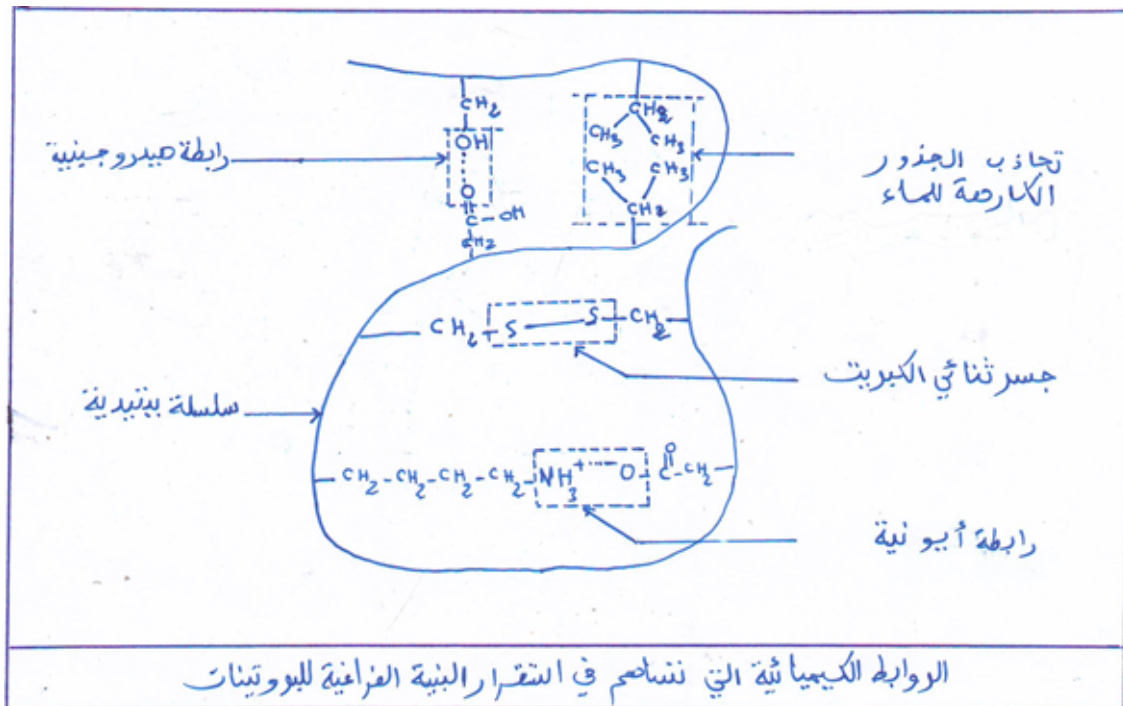 CH2
OH
O
C - OH
CH2
CH2
CH3 CH3
CH3 CH3
CH2
رابطة هيدروجينية
تجاذب الجذور
الكارهة للماء
CH2 S S CH2
جسر ثنائي الكبريت
سلسلة بيبتيدية
CH2-CH2-CH2-CH2-NH3+ O-C-CH2
O
رابطة أيونية
الروابط الكيميائية التي تساهم في استقرار البنية الفراغية للبروتينات